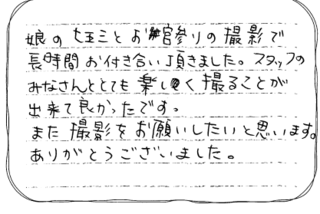 娘の七五三とお宮参りの撮影で
長時間お付き合い頂きました。スタッフの
みなさんととても楽しく撮ることが
出来て良かったです。
また撮影をお願いしたいと思います。
ありがとうございました。